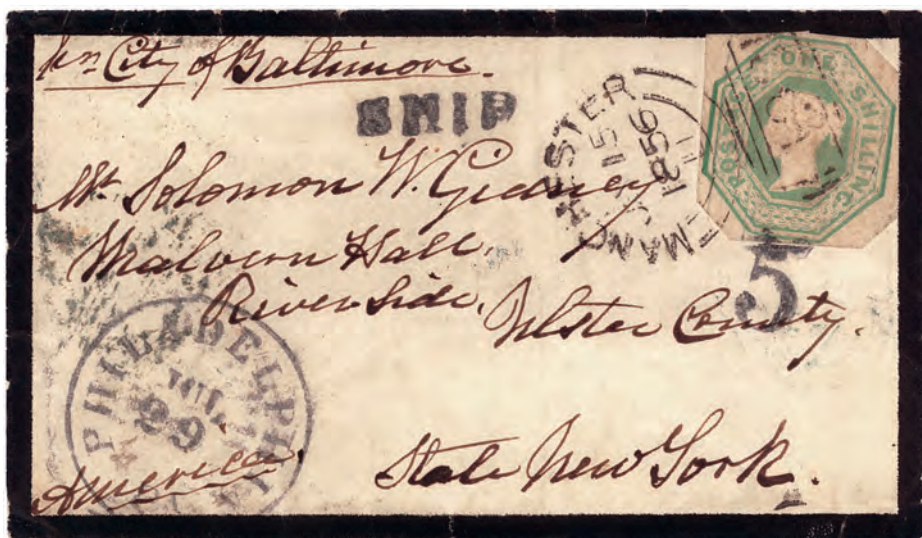 City of Baltimore.
SHIP
MANCHESTER
15
1856
POSTAGE ONE SHILLING
Mr. Solomon W. Gidney
Malvern Hall,
River Side,
Ulster County.
5
PHILADELPHIA
JUL
29
America.
State New York.